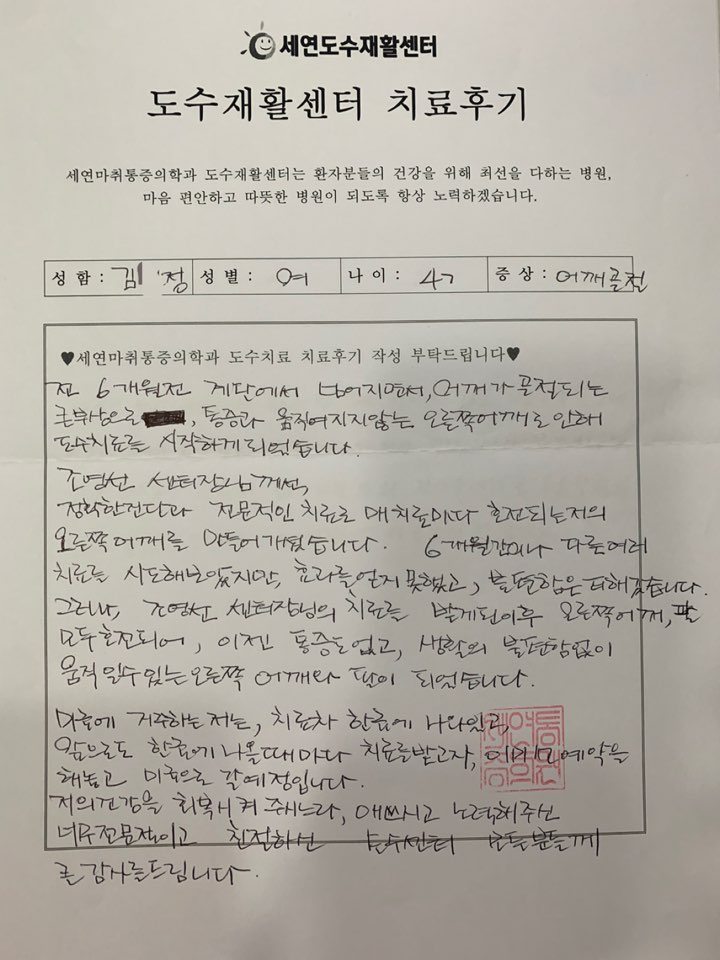 세연도수재활센터
도수재활센터 치료후기
세연마취통증의학과 도수재활센터는 환자분들의 건강을 위해 최선을 다하는 병원,
마음 편안하고 따뜻한 병원이 되도록 항상 노력하겠습니다.
성 함 : 김 정 성 별 : 여 나 이 : 47 증 상 : 어깨골절
♥세연마취통증의학과 도수치료 치료후기 작성 부탁드립니다♥
전 6개월전 계단에서 넘어지면서, 어깨가 골절되는
큰부상으로, 통증과 움직여지지않는 오른쪽어깨로 인해
도수치료를 시작하게되었습니다.
조영선 센터장님께선,
정확한진단과 전문적인 치료로 매치료마다 호전되는저의
오른쪽어깨를 만들어 주셨습니다. 6개월간이나 다른여러
치료를 시도해보았지만, 효과를얻지못했고, 불편함은더해갔습니다.
그러나, 조영선 센터장님의 치료를 받게된이후 오른쪽어깨, 팔
모두호전되어, 이젠 통증도없고, 생활의 불편함없이
움직일수있는오른쪽 어깨와 팔이 되었습니다.
미국에 거주하는저는, 치료차 한국에 나와있고,
앞으로도 한국에나올때마다 치료를받고자, 예약을
해놓고 미국으로 갈예정입니다.
저의건강을 회복시켜 주시느라, 애쓰시고 노력해주신
너무전문적이고 친절하신 도수센터 모든분들께
큰감사를드립니다.